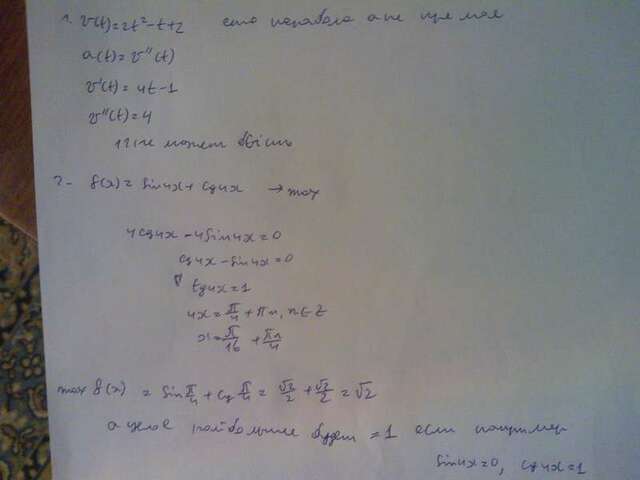 1. v(t)=2t²-t+2 это парабола а не прямая
a(t)=v''(t)
v'(t)=4t-1
v''(t)=4
не может быть
2- f(x)=sin4x+cos4x → max
4cos4x-4sin4x=0
cos4x-sin4x=0
tg4x=1
4x=π/4+πn, n∈Z
x=π/16+πn/4
max f(x) = sin π/4 + cos π/4 = √2/2+√2/2=√2
а целое наибольшее будет =1 если например
sin4x=0, cos4x=1